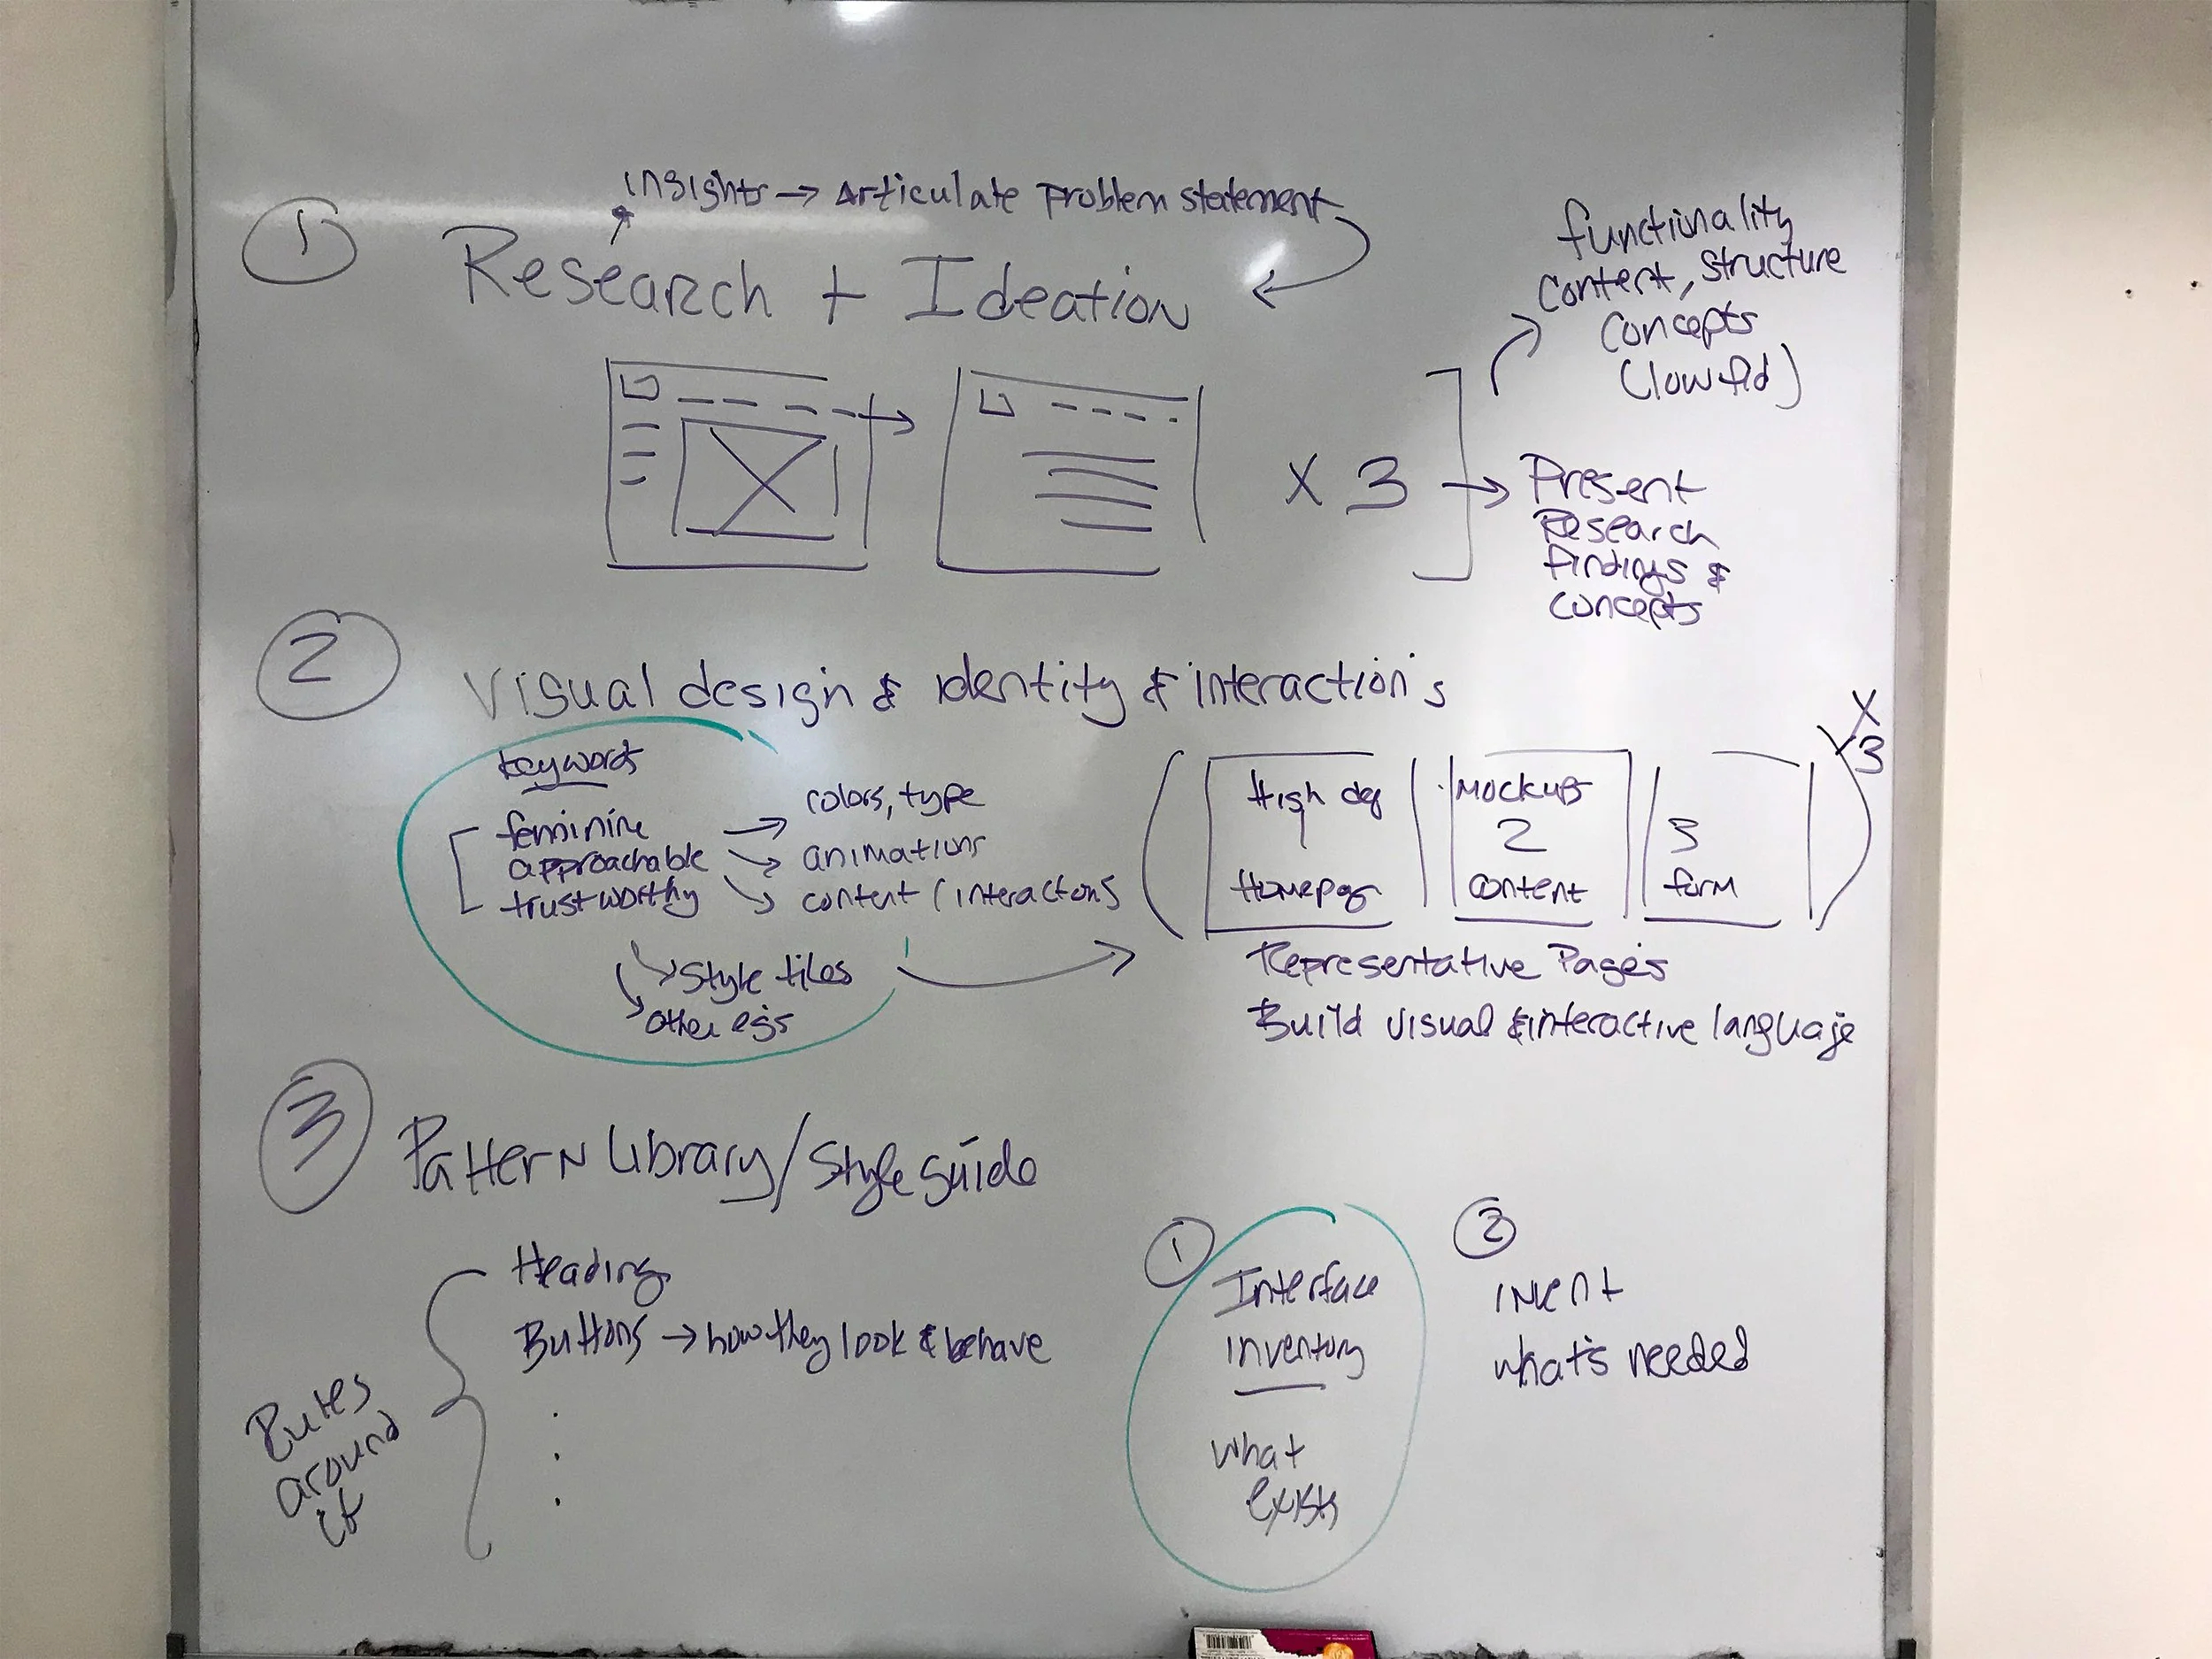 insights → Articulate problem statement
1
Research + Ideation
functionality
content, structure
concepts
(low fid)
x 3
Present
Research
findings &
concepts
2
Visual design & identity & interaction's
keywords
feminine → colors, type
approachable → animations
trustworthy → content (interactions
Style tiles
other egs
x
3
High def
1
Homepage
Mockups
2
content
3
form
Representative Pages
Build visual & interactive language
3
Pattern Library/Style guide
Heading
Buttons → how they look & behave
Rules
around
it
1
Interface
inventory
what
exists
2
invent
what's needed